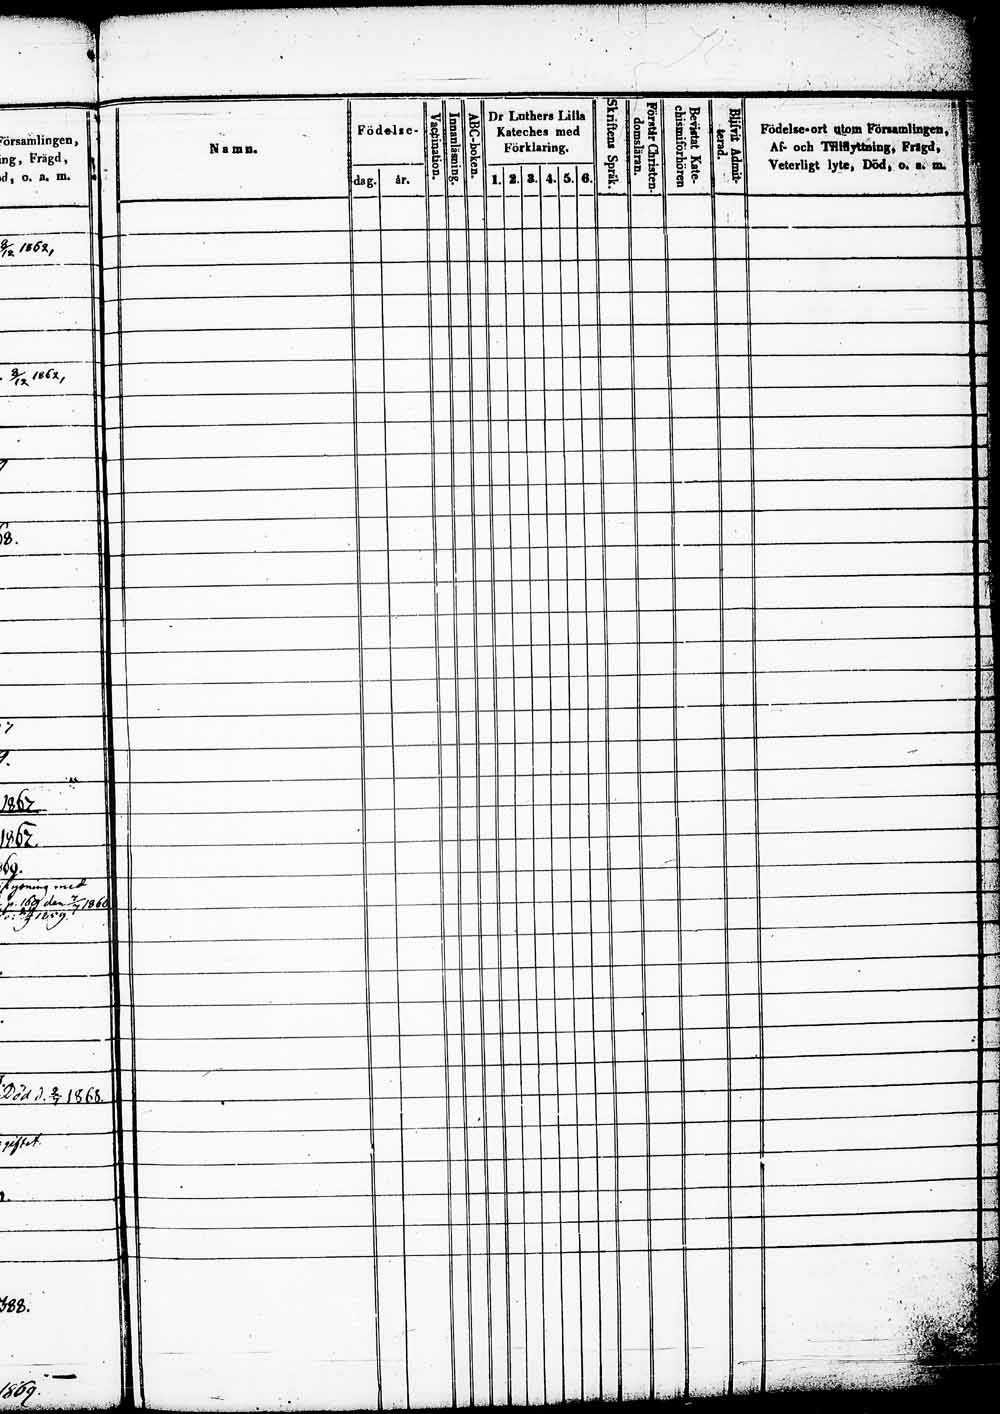 Församlingen,
ing, Frägd,
öd, o. a. m.
2/12 1862,
2/12 1862,
68.
7
9.
1867
1867.
869.
med
p. 169 den 7/7 1860
1859.
Död d. 2/7 1868.
giftet.
388.
1869.
Namn.
Födelse-
dag.
år.
Vaccination.
Innanläsning.
ABC-boken.
Dr Luthers Lilla
Kateches med
Förklaring.
1. 2. 3. 4. 5. 6.
Skriftens Språk.
Förstår Christen-
domsläran.
Bevistat Kate-
chismiförhören
Blifvit Admit-
terad.
Födelse-ort utom Församlingen,
Af- och Tillflyttning, Frägd,
Veterligt lyte, Död, o. a. m.